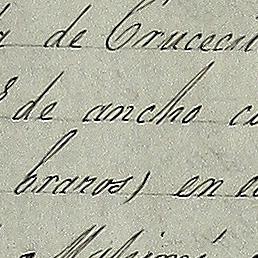 de Crucecit
de ancho c
brazos) en e
Mapimí